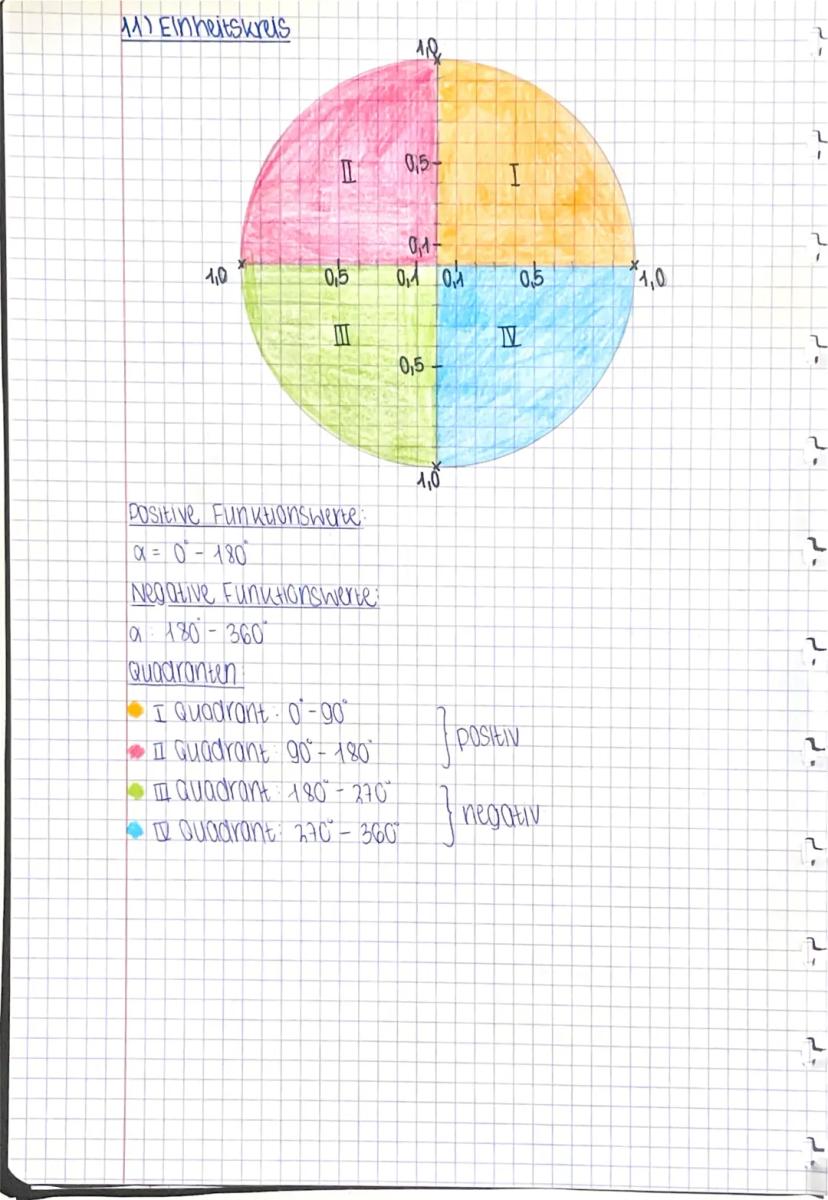 11) Einheitskreis
1,0
0,5
II
I
0,1
1,0
0,5
0,1
0,1
0,5
1,0
III
IV
0,5
1,0
Positive Funktionswerte:
α = 0° - 180°
Negative Funktionswerte:
α: 180° - 360°
Quadranten:
I Quadrant: 0° - 90°
II Quadrant: 90° - 180°
positiv
III Quadrant: 180° - 270°
IV Quadrant: 270° - 360°
negativ